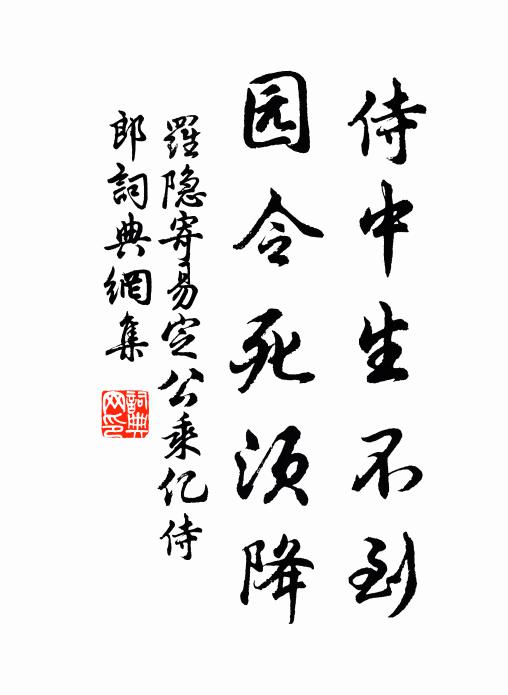 侍中生不到
园令死须降
羅隐寄易定公乘亿侍
郎詞典網集
詞典
网印